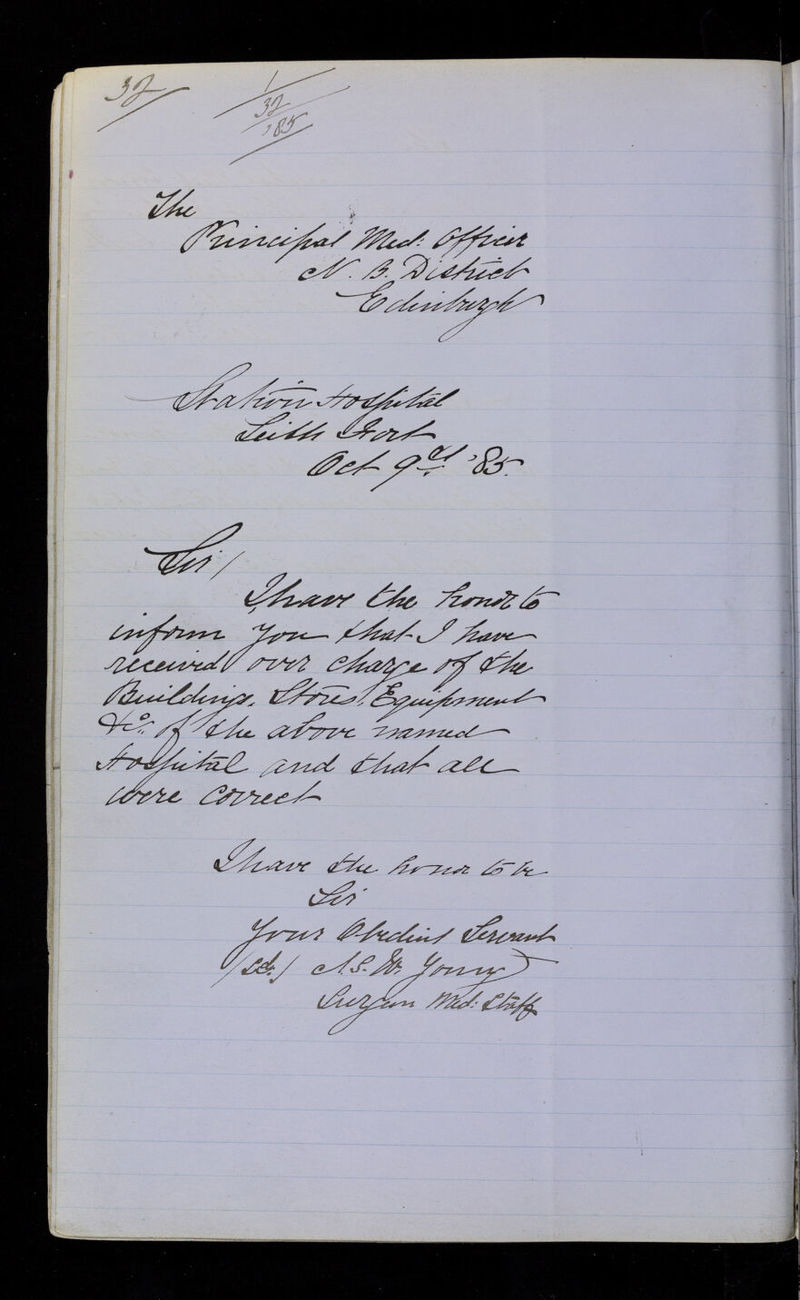 32
1
32
'85
The
Principal Med: Officer
N. B. District
Edinburgh
Station Hospital
Leith Fort
Oct 9th '85.
Sir/
I have the honor to
inform you that I have
received over charge of the
Buildings, Stores, Equipment
&c. of the above named
Hospital and that all
were correct
I have the honor to be
Sir
Your Obedient Servant
(sd.) W. Young
Surgeon Med: Staff